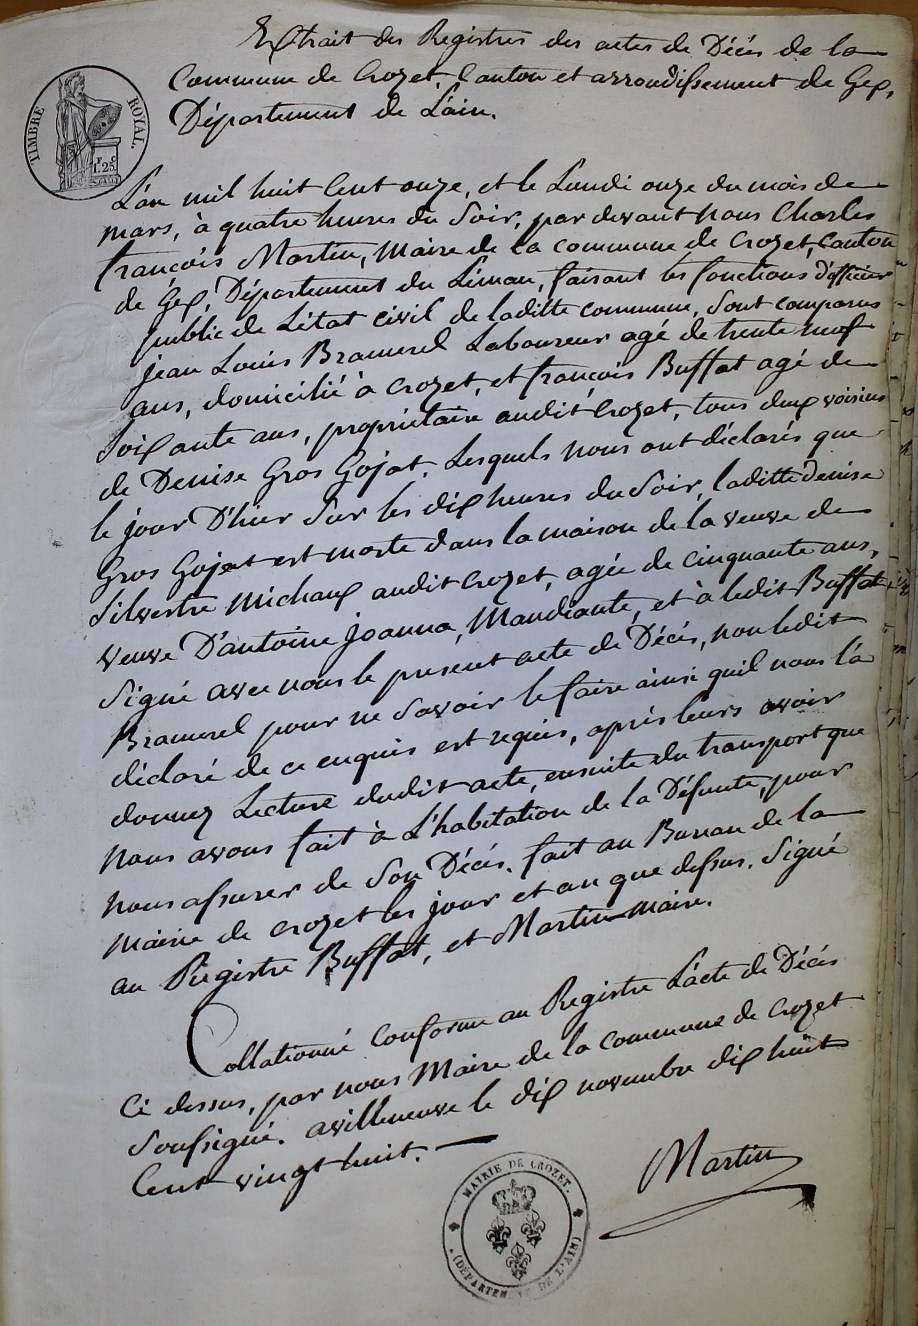 Extrait des Registres des actes de Décés de la
Commune de Crozet, Canton et arrondissement de Gex,
Département de L'ain.
TIMBRE ROYAL.
1.F 25.C
L'an mil huit Cent onze, et le Lundi onze du mois de
mars, à quatre heures du Soir, par devant nous Charles
françois Martin, Maire de la commune de Crozet, Canton
de Gex, Département du Léman, faisant les fonctions d'officier
public de L'état civil de laditte commune, Sont comparus
Jean Louis Bramerel Laboureur agé de trente neuf
ans, domicilié à Crozet, et françois Buffat agé de
Soixante ans, propriétaire audit Crozet, tous deux voisins
de Denise Gros Gojat, Lesquels nous ont déclarés que
le jour D'hier Sur les dix heures du Soir, laditte Denise
Gros Gojat est morte dans la maison de la veuve de
Silvestre Michaux audit Crozet, agée de cinquante ans,
veuve D'antoine Joanna, Mandiante, et à ledit Buffat
Signé avec nous le present acte de Décés, non ledit
Bramerel pour ne Savoir le faire ainsi quil nous l'a
déclaré de ce enquis est requis, après leurs avoir
donnez Lecture dudit acte, ensuite du transport que
nous avons fait à L'habitation de la Défunte, pour
nous assurer de Son Décés. fait au Bureau de la
Mairie de Crozet les jour et an que dessus. Signé
au Registre Buffat, et Martin maire.
Collationné Conforme au Registre L'acte de Décés
Ci dessus, par nous Maire de la commune de Crozet
Soussigné. avilleneuve le dix novembre dix huit
Cent vingt huit. —
Martin
MAIRIE DE CROZET.
(DÉPARTEMENT DE L'AIN)